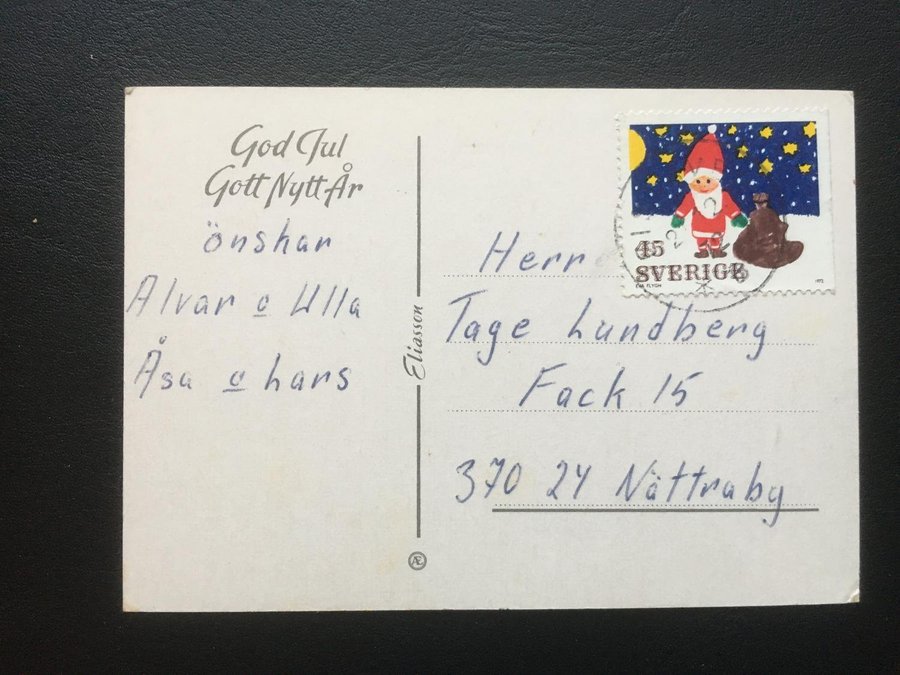 God Jul
Gott Nytt År
önskar
Alvar o Ulla
Åsa o Lars
Eliasson
Æ
45
SVERIGE
EVA FLYGH
1972
Herr
Tage Lundberg
Fack 15
370 24 Nättraby